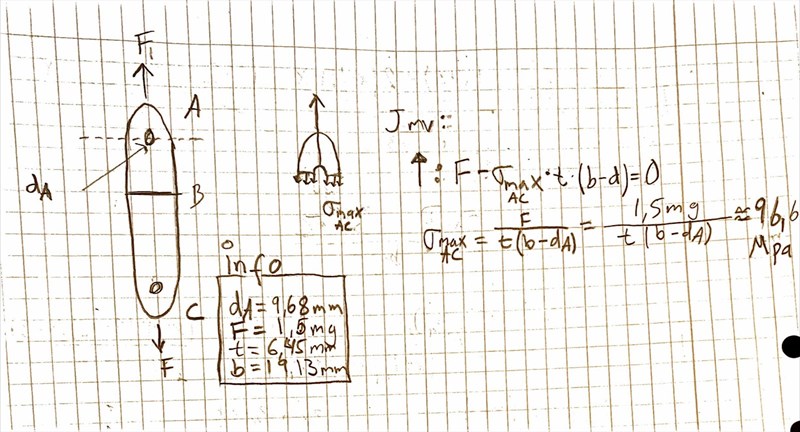 F₁
A
dA
B
C
F
σmax
AC
info
dA = 9,68mm
F = 1,5mg
t = 6,45 mm
b = 19,13mm
Jmv:
↑: F - σmax AC · t · (b-d) = 0
σmax AC = F / t(b-dA) = 1,5mg / t(b-dA) ≈ 96,6 Mpa